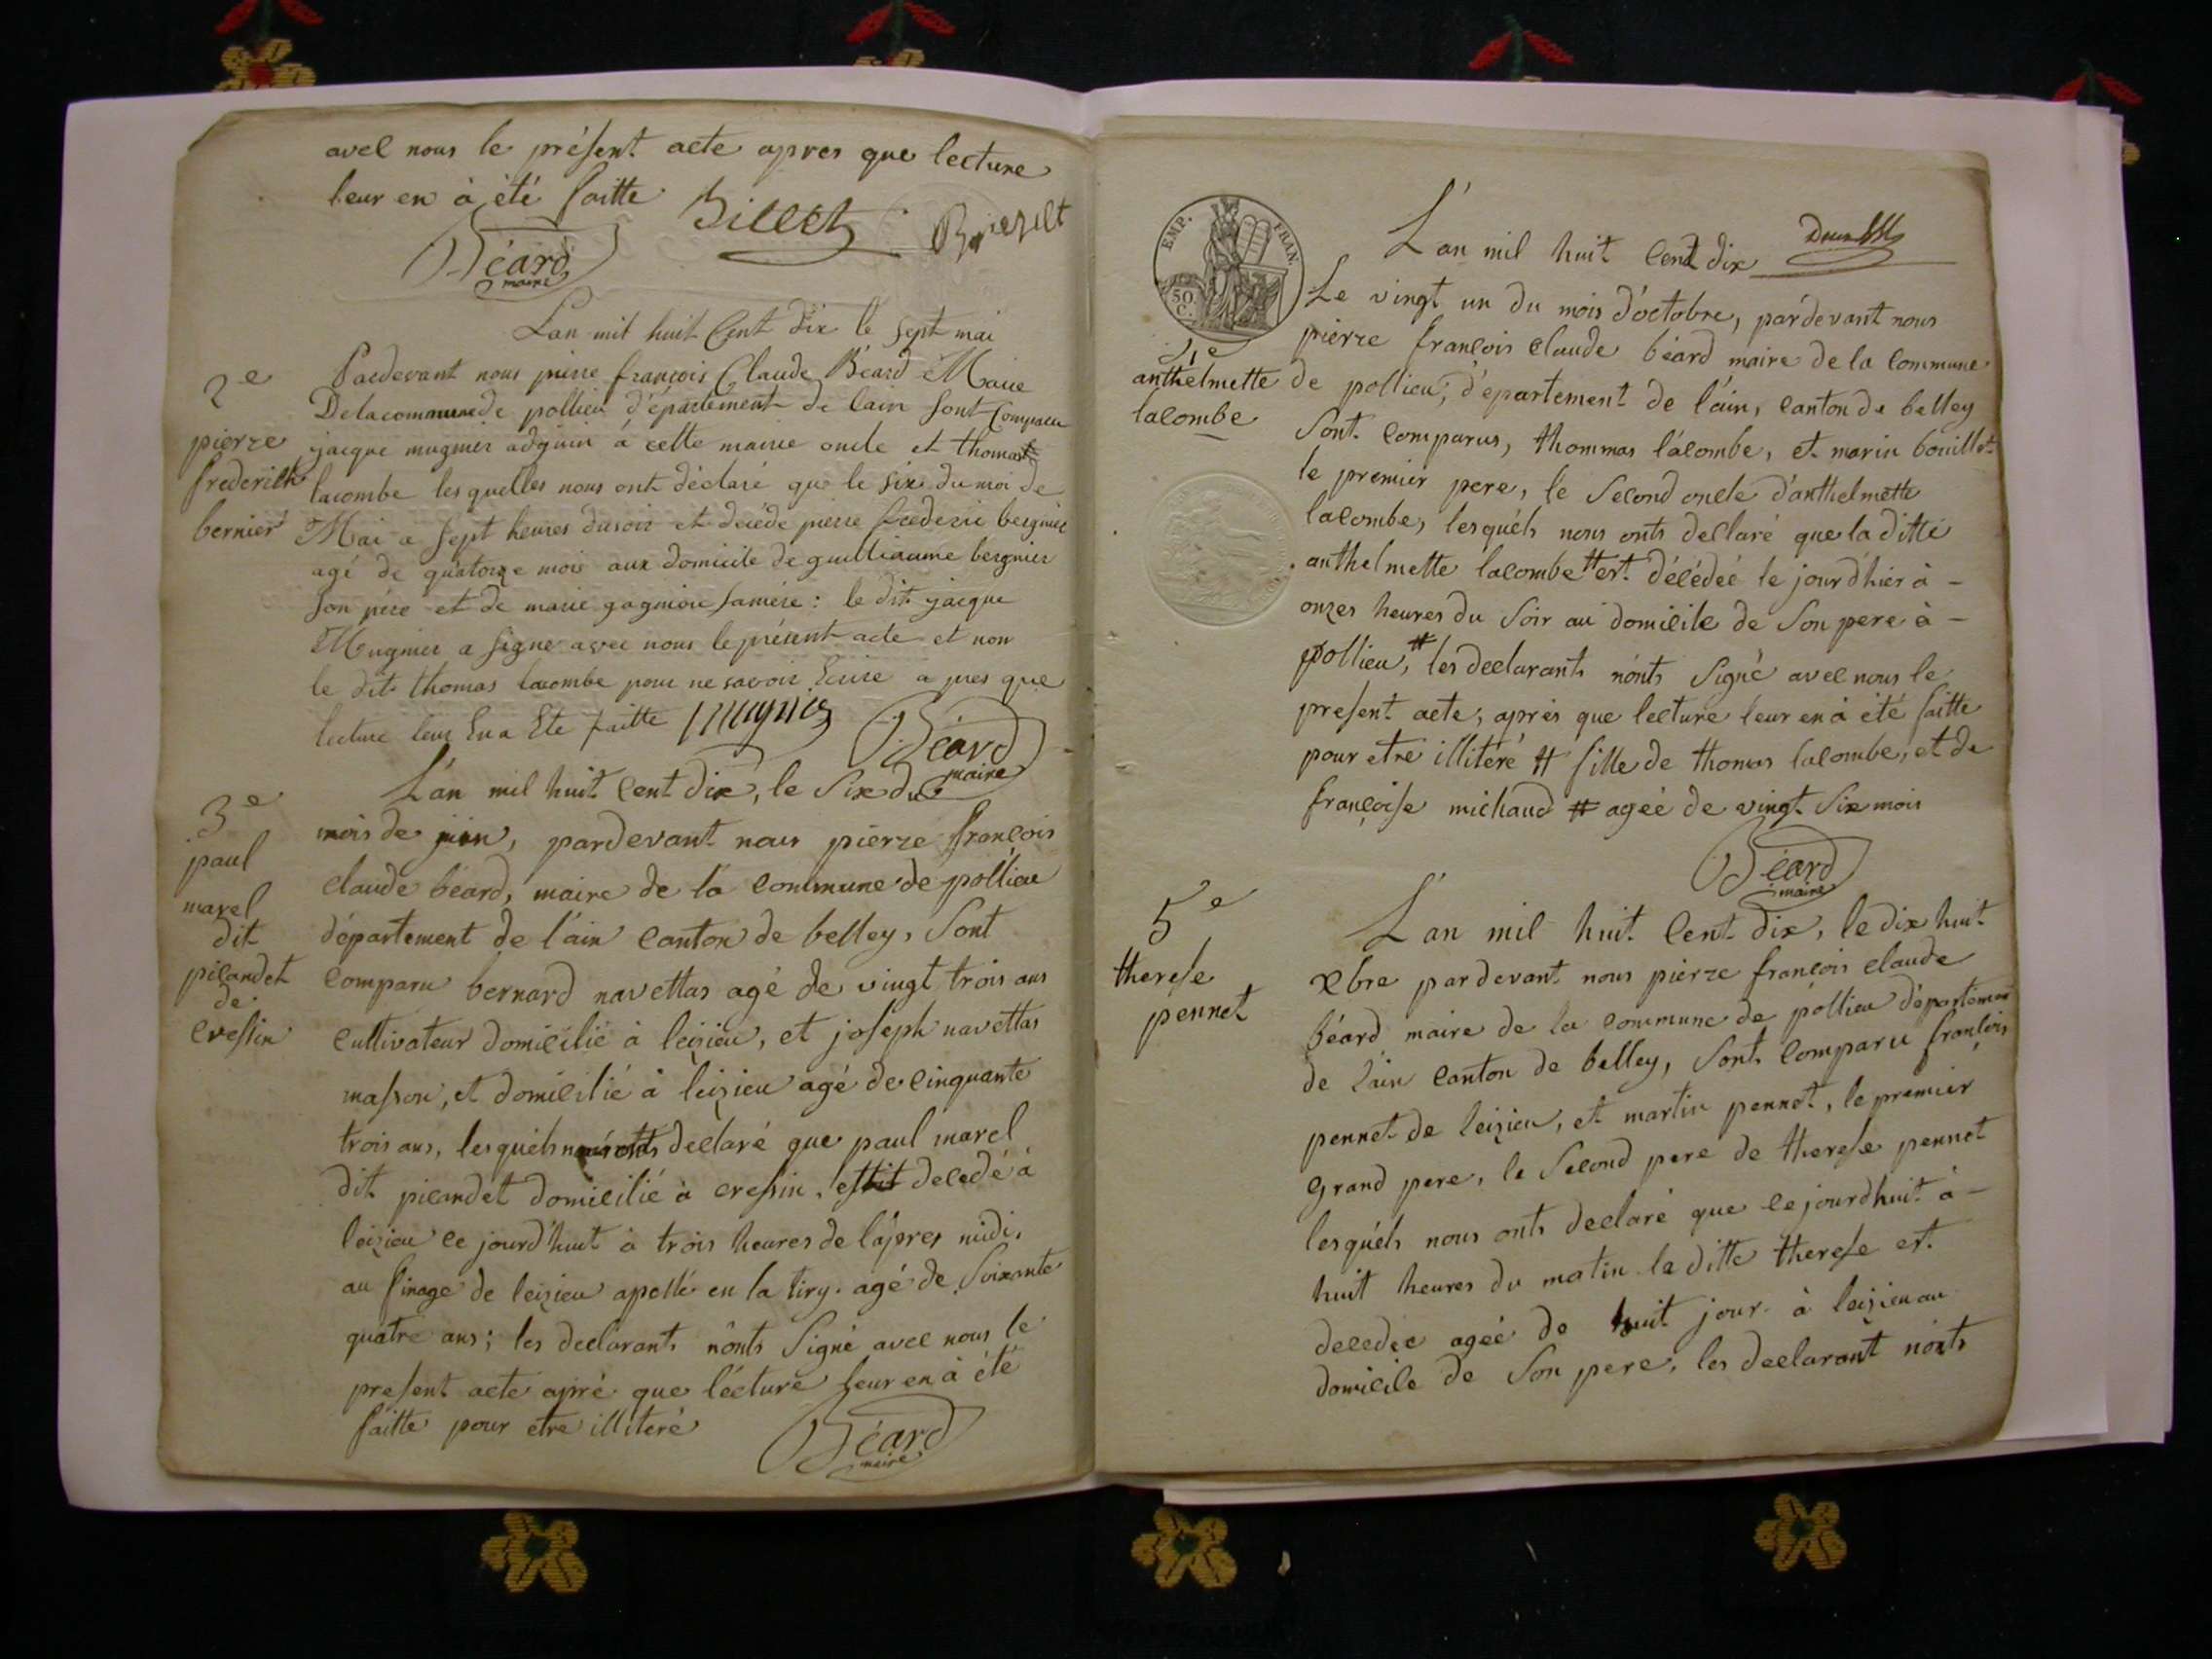 avec nous le présent acte apres que lecture
leur en à été faitte
Billet
Béard
maire
L'an mil huit Cent dix le sept mai
2e
pierre
frederich
bernier
Pardevant nous pierre françois Claude Béard Maire
De la commune de pollieu d'épartement de lain sont Comparu
jacque mugnier adjoin à cette mairie oncle et thomas
lacombe les quelles nous ont déclaré que le six du moi de
Mai a sept heures du soir et décéde pierre frederic bergnier
agé de quatorze mois aux domicile de guilliaume bergnier
son pére et de marie gagnion samére : le dit jacque
Mugnier a signe avec nous le présent acte et non
le dit thomas lacombe pour ne savoir Ecrire a pres que
lecture leur En a Ete faitte
mugnier
Béard
maire
3e
paul
marel
dit
picandet
de
cressin
L'an mil huit Cent dix, le Six du
mois de juin, pardevant nous pierre françois
claude béard, maire de la commune de pollieu
département de l'ain canton de belley, Sont
comparu bernard navettas agé de vingt trois ans
cultivateur domicilié à leizieu, et joseph navettas
masson, et domicilié à leizieu agé de cinquante
trois ans, lesquéls nous onts declaré que paul marel
dit picandet domicilié à cressin, est decedé à
leizieu ce jourd'huit à trois heures de l'apres midi,
au finage de leizieu apellé en la tiry. agé de Soixante
quatre ans ; les declarants nónts Signé avec nous le
present acte apré que lécture leur en à été
faitte pour etre illiteré
Béard
maire
EMP. FRAN.
50.
C.
L'an mil huit Cent dix
4e
anthelmette
lacombe
Le vingt un du mois d'octobre, pardevant nous
pierre françois claude béard maire de la commune
de pollieu, d'épartement de l'ain, canton de belley
Sont comparus, thommas lacombe, et marin bouillet
le premier pere, le Second oncle d'anthelmette
lacombe, lesquéls nous onts declaré que la ditte
anthelmette lacombe # est décédeé le jour d'hier à -
onzes heures du Soir au domicile de Son pere à -
pollieu, # les declarants nónts Signé avec nous le
present acte, aprés que lecture leur en à été faitte
pour etre illitéré # fille de thomas lacombe, et de
françoise michaud # ageé de vingt Six mois
Béard
maire
5e
therese
pennet
L'an mil huit Cent dix, le dix huit
xbre pardevant nous pierre françois claude
béard maire de la commune de pollieu département
de l'ain canton de belley, Sont comparu françois
pennet de leizieu, et martin pennet, le premier
grand pere, le Second pere de therese pennet
lesquéls nous onts declaré que cejourdhuit à -
huit heures du matin la ditte therese est
decedée ageé de huit jour à leizieu au
domicile de Son pere, les declarant nónts